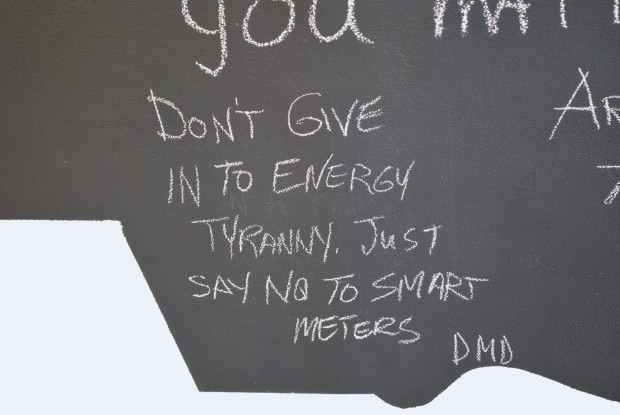 you
DON'T GIVE
IN TO ENERGY
TYRANNY. JUST
SAY NO TO SMART
METERS
DMD